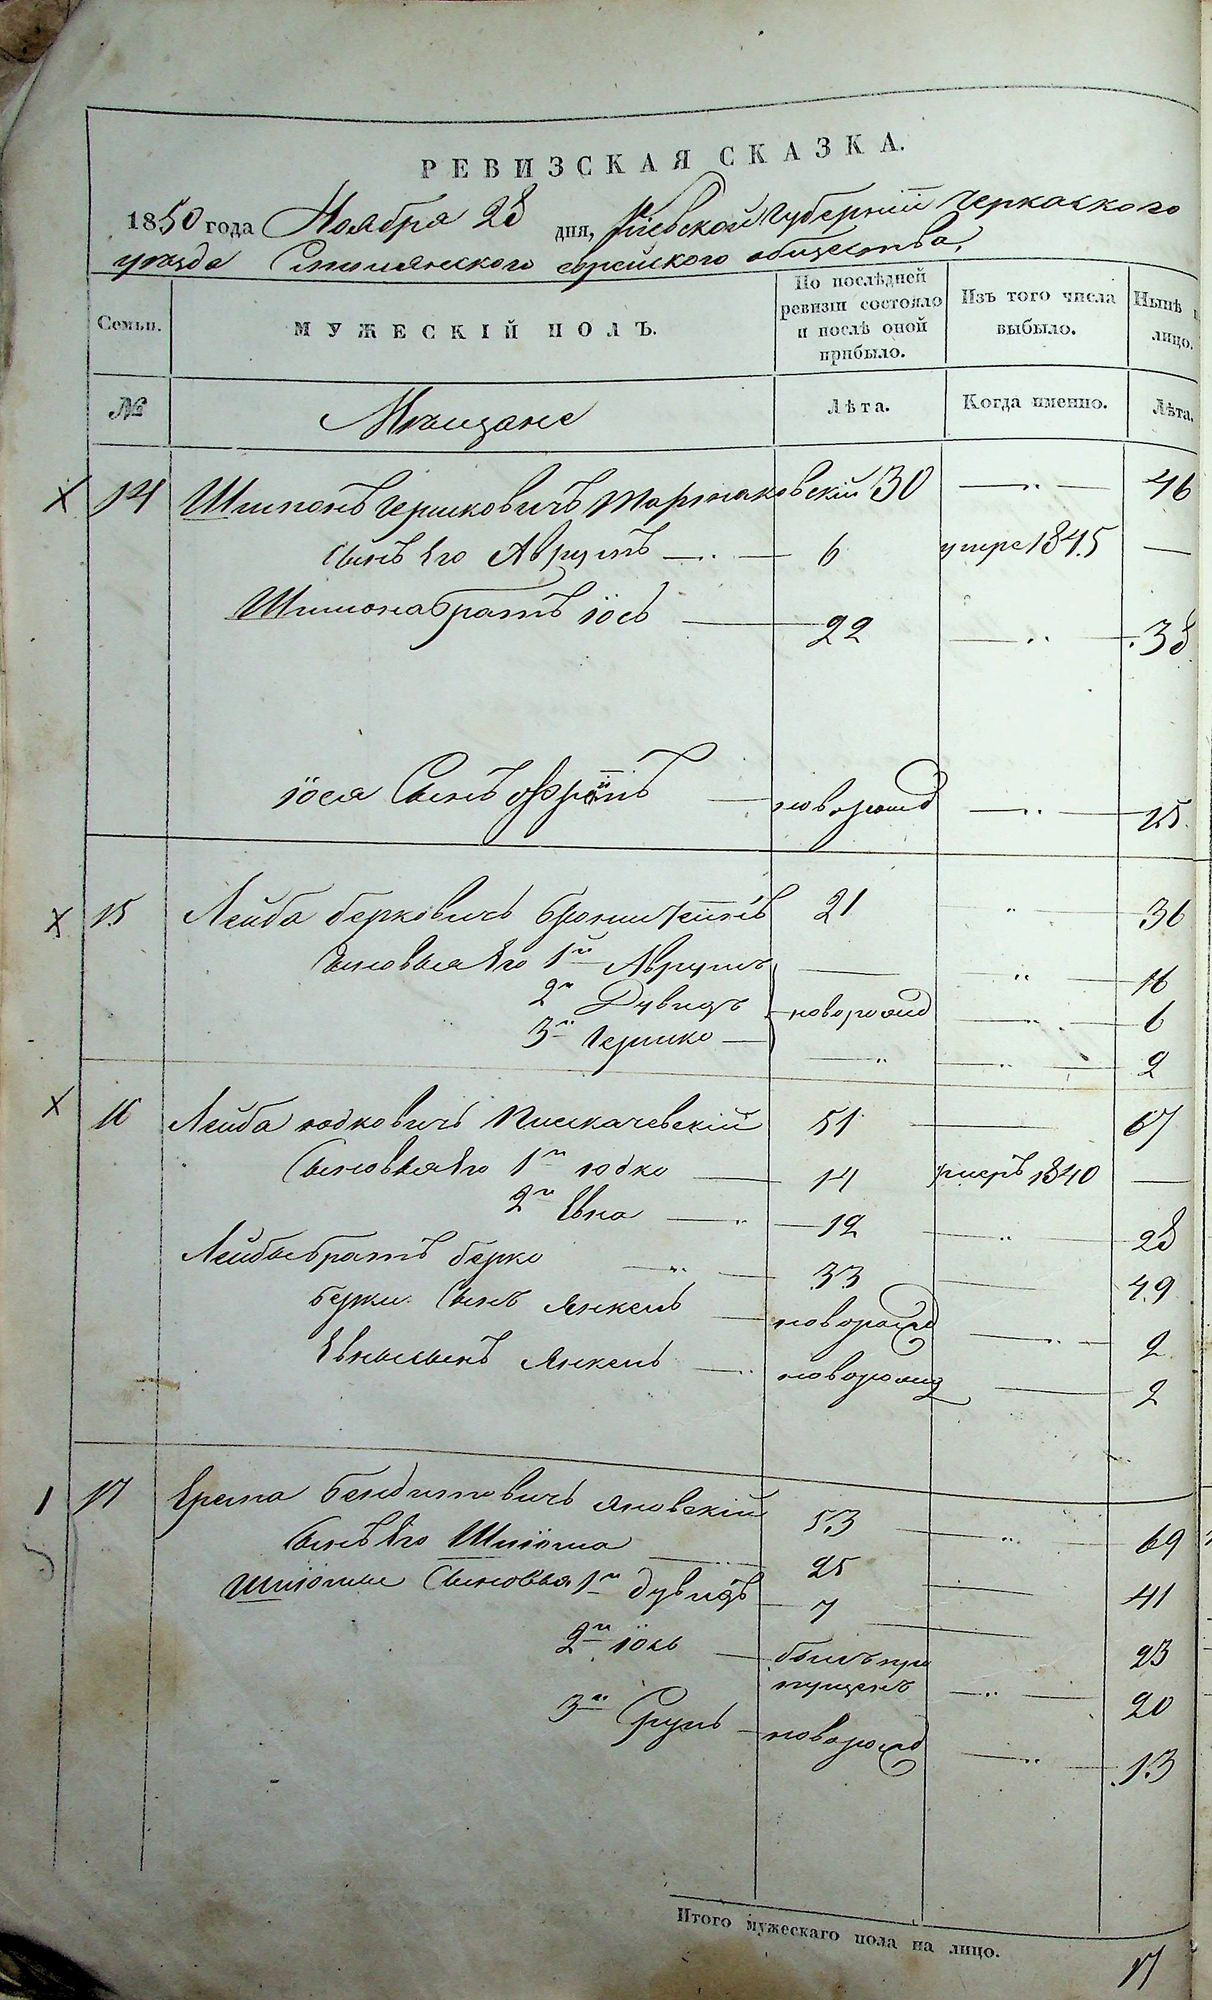 РЕВИЗСКАЯ СКАЗКА.
1850 года Ноября 28 дня, Киевской Губернии Черкаского
уезда Смелянского еврейского общества.
Семьи. МУЖЕСКІЙ ПОЛЪ. По послѣдней ревизіи состояло и послѣ оной прибыло. Изъ того числа выбыло. Нынѣ лицо.
№ Мещане Лѣта. Когда именно. Лѣта.
14 Шимонъ Гершковичъ 30 46
сынъ его Аврумъ 6 умре 1845
Шимона братъ Іось 22 38
Іося Сынъ новорожд 15
15 Лейба Берковичъ 21 36
Сыновья Его 1й Аврумъ 16
2й Дувидъ новорожд 6
3й Гершко 2
16 Лейба Юдковичъ 51 67
Сыновья Его 1й Юдко 14 умеръ 1840
2й Евна 12 28
Лейбы братъ Берко 33 49
Берки Сынъ Янкель новорожд 2
Евны сынъ Янкель новорожд 2
17 Ерема Бендитовичъ Яновскій 53 69
Сынъ Его Шліома 25 41
Шліомы Сыновья 1й Дувидъ 7 23
2й Іось былъ пропущенъ 20
3й Сруль новорожд 13
Итого мужескаго пола на лицо. 17